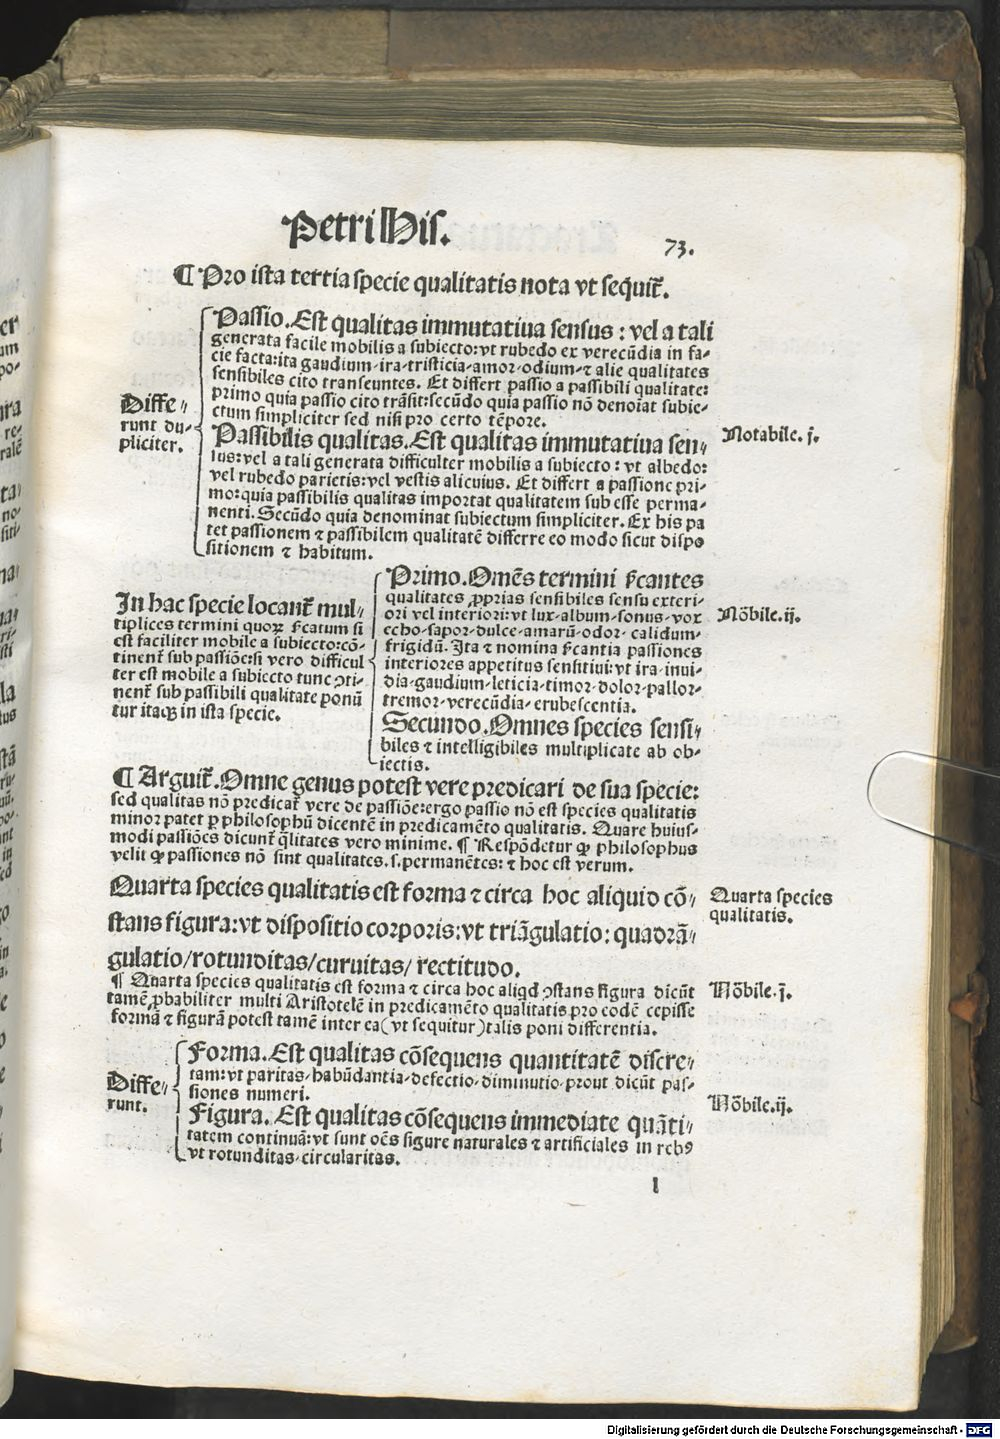 Petri His.
73.
¶ Pro ista tertia specie qualitatis nota vt sequit᷑.
Passio. Est qualitas immutatiua sensus : vel a tali
generata facile mobilis a subiecto: vt rubedo ex verecūdia in fa⸗
cie facta: ita gaudium⸱ ira⸱ tristicia⸱ amor⸱ odium⸱ ⁊ alie qualitates
sensibiles cito transeuntes. Et differt passio a passibili qualitate:
primo quia passio cito trāsit: secūdo quia passio nō denoiat subie⸗
ctum simpliciter sed nisi pro certo tēpore.
Diffe⸗
runt du⸗
pliciter.
Passibilis qualitas. Est qualitas immutatiua sen⸗
sus: vel a tali generata difficulter mobilis a subiecto : vt albedo:
vel rubedo parietis: vel vestis alicuius. Et differt a passione pri⸗
mo: quia passibilis qualitas importat qualitatem sub esse perma⸗
nenti. Secūdo quia denominat subiectum simpliciter. Ex his pa
tet passionem ⁊ passibilem qualitatē differre eo modo sicut dispo
sitionem ⁊ habitum.
Notabile. j.
In hac specie locant᷑ mul⸗
tiplices termini quoꝝ s̄catum si
est faciliter mobile a subiecto: cō⸗
tinent᷑ sub passiōe: si vero difficul
ter est mobile a subiecto tunc ꝯti⸗
nent᷑ sub passibili qualitate ponū
tur itaqꝫ in ista specie.
Primo. Omēs termini s̄cantes
qualitates ꝓprias sensibiles sensu exteri⸗
ori vel interiori: vt lux⸱ album⸱ sonus⸱ vox
echo⸱ sapor⸱ dulce⸱ amarū⸱ odor⸱ calidum⸱
frigidū. Ita ⁊ nomina s̄cantia passiones
interiores appetitus sensitiui: vt ira⸱ inui⸗
dia⸱ gaudium⸱ leticia⸱ timor⸱ dolor⸱ pallor⸱
tremor⸱ verecūdia⸱ erubescentia.
Secundo. Omnes species sensi⸗
biles ⁊ intelligibiles multiplicate ab ob⸗
iectis.
Nōbile. ij.
¶ Arguit᷑. Omne genus potest vere predicari de sua specie:
sed qualitas nō predicat᷑ vere de passiōe: ergo passio nō est species qualitatis
minor patet ꝑ philosophū dicentē in predicamēto qualitatis. Quare huius⸗
modi passiōes dicunt᷑ q̄litates vero minime. ¶ Respōdetur ꝙ philosophus
velit ꝙ passiones nō sint qualitates. s. permanētes: ⁊ hoc est verum.
Quarta species qualitatis est forma ⁊ circa hoc aliquid cō⸗
stans figura: vt dispositio corporis: vt triāgulatio: quadrā⸗
gulatio/ rotunditas/ curuitas/ rectitudo.
Quarta species
qualitatis.
¶ Quarta species qualitatis est forma ⁊ circa hoc aliqd ꝯstans figura dicūt
tamē ꝓbabiliter multi Aristotelē in predicamēto qualitatis pro eodē cepisse
formā ⁊ figurā potest tamē inter ea (vt sequitur) talis poni differentia.
Nōbile. j.
Diffe⸗
runt.
Forma. Est qualitas cōsequens quantitatē discre⸗
tam: vt paritas⸱ habūdantia⸱ defectio⸱ diminutio⸱ prout dicūt pas⸗
siones numeri.
Figura. Est qualitas cōsequens immediate quāti⸗
tatem continuā: vt sunt oēs figure naturales ⁊ artificiales in rebꝰ
vt rotunditas⸱ circularitas.
Nōbile. ij.
l
Digitalisierung gefördert durch die Deutsche Forschungsgemeinschaft - DFG